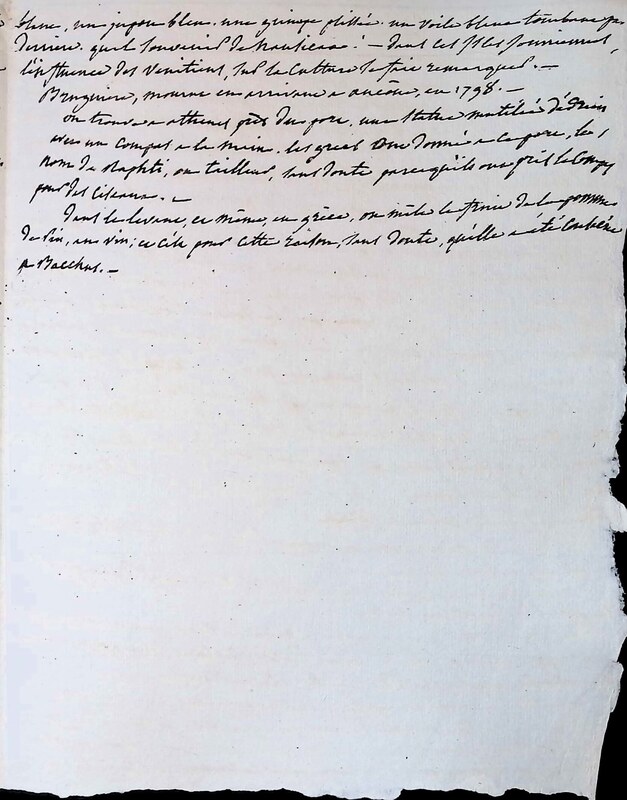 blanc, un jupon bleu, une guimpe plissée, un voile bleu tombant par
derriere. quel souvenir de ! — dans les Isles joniennes,
l'influence des venitiens, sur la Culture se fait remarquer. —
Bruguiere, mourut en arrivant a ancône, en 1798. —
on trouve a athenes près du port, une statue mutilée d'
avec un compas a la main. les grecs ont donné a ce port, le
nom de Raphti, ou tailleur, sans doute parcequ'ils ont pris le Compas
pour des Ciseaux. —
Dans le levant, et même, en grèce, on mêle le fruit de la pomme
de Pin, au vin; et c'est pour cette raison, sans doute, qu'elle a été Consacrée
a Bacchus. —